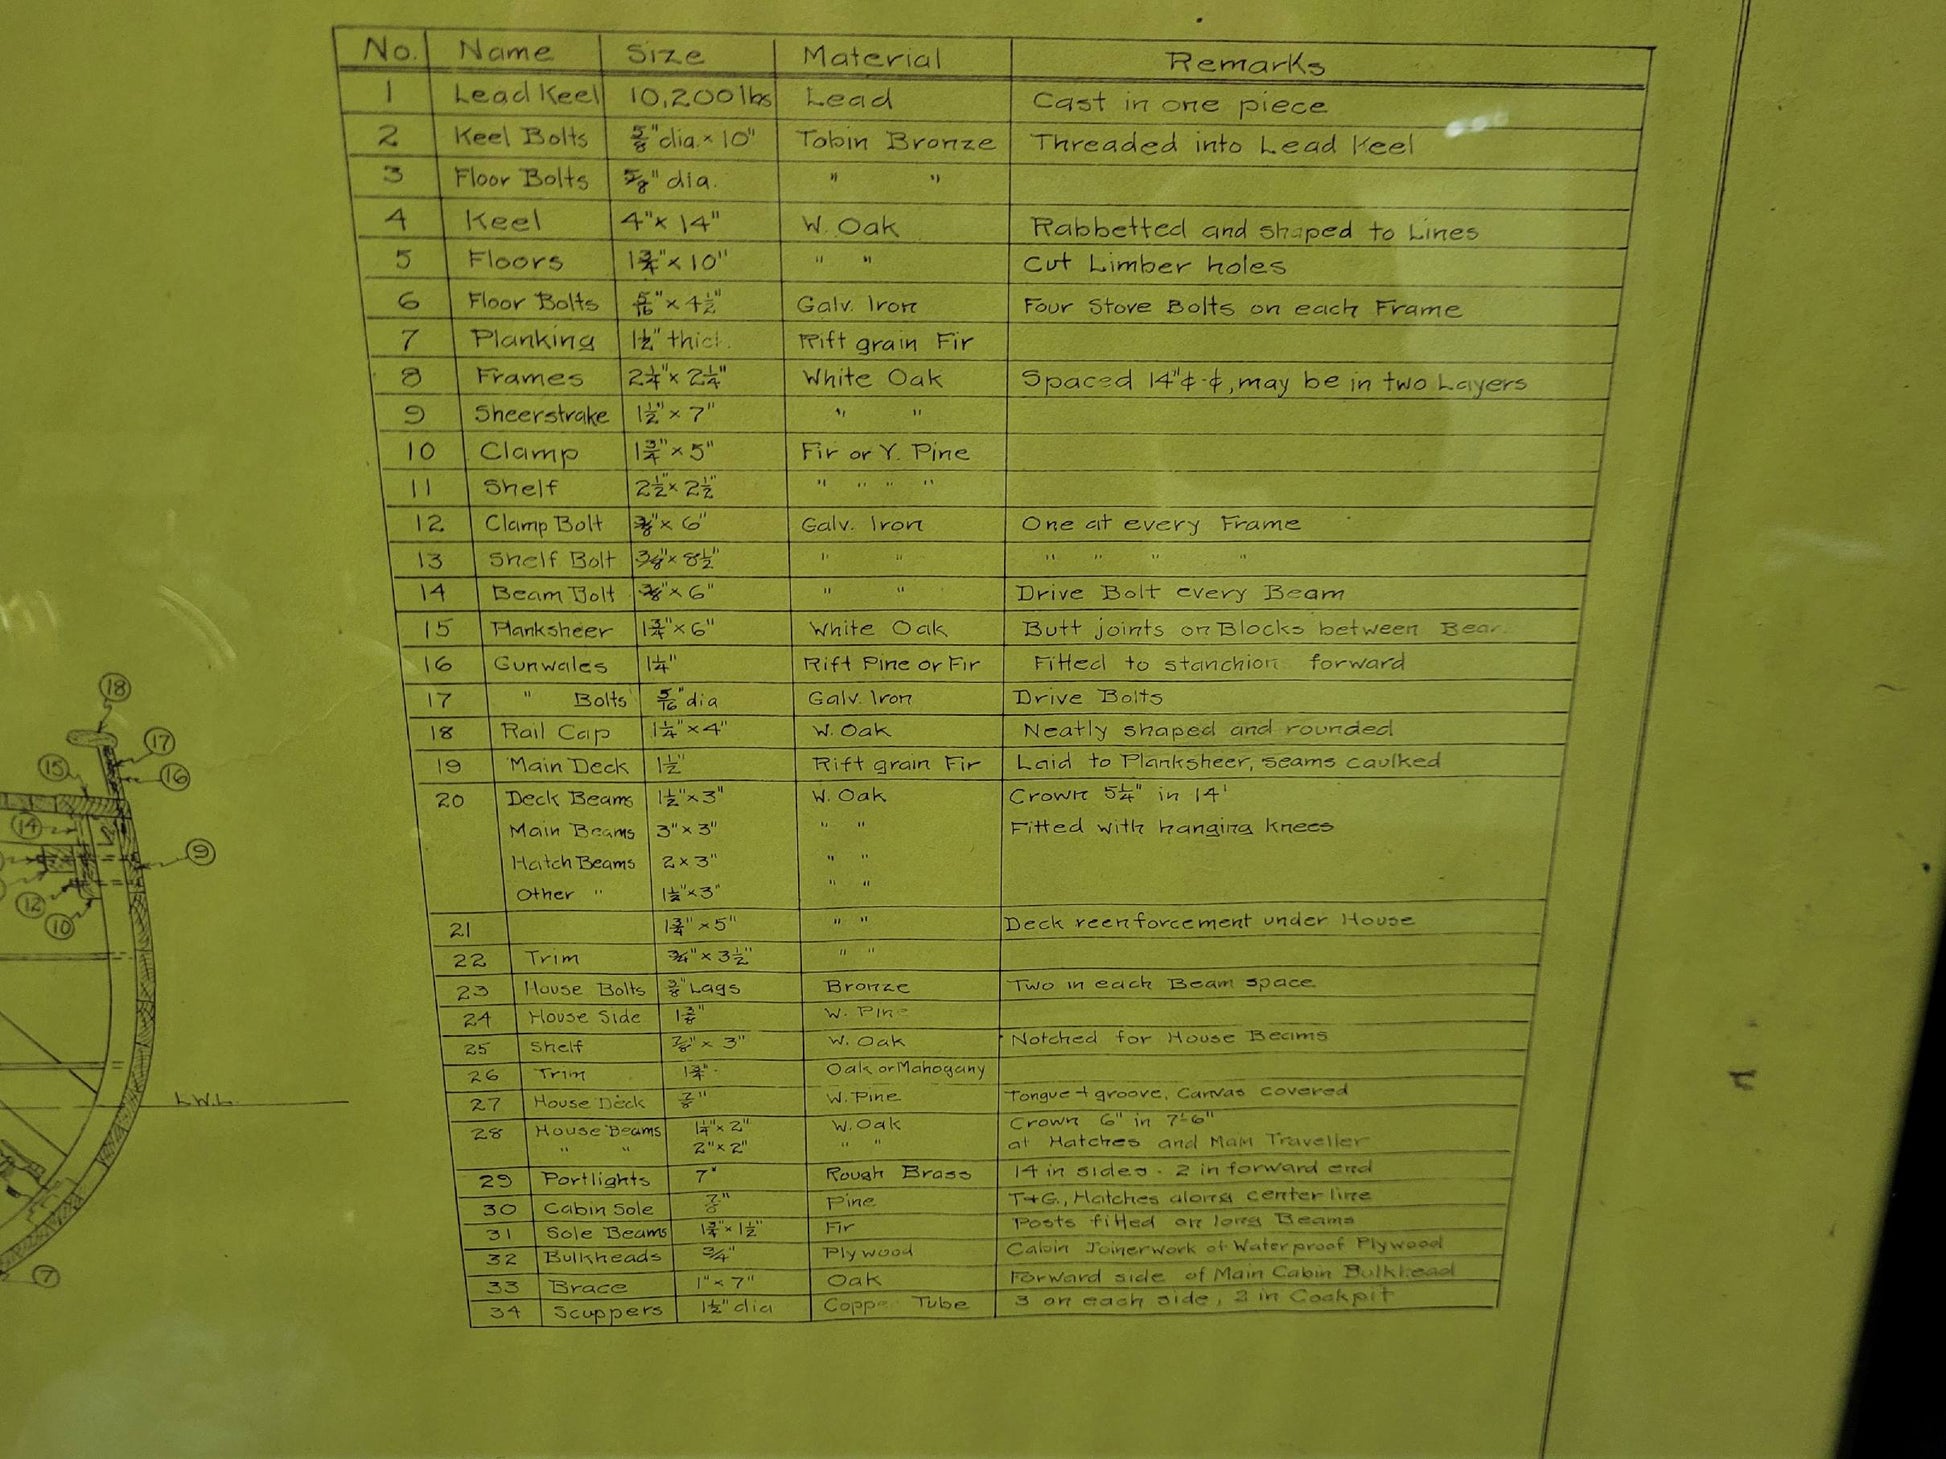 No. Name Size Material Remarks
1 Lead Keel 10,200 lbs Lead Cast in one piece
2 Keel Bolts 5/8" dia. x 10" Tobin Bronze Threaded into Lead Keel
3 Floor Bolts 5/8" dia. " "
4 Keel 4" x 14" W. Oak Rabbetted and shaped to Lines
5 Floors 1 3/4" x 10" " " Cut Limber holes
6 Floor Bolts 5/16" x 4 1/2" Galv. Iron Four Stove Bolts on each Frame
7 Planking 1 1/2" thick. Rift grain Fir
8 Frames 2 1/4" x 2 1/4" White Oak Spaced 14" ¢-¢, may be in two Layers
9 Sheerstrake 1 1/2" x 7" " "
10 Clamp 1 3/4" x 5" Fir or Y. Pine
11 Shelf 2 1/2" x 2 1/2" " " " "
12 Clamp Bolt 3/8" x 6" Galv. Iron One at every Frame
13 Shelf Bolt 3/8" x 8 1/2" " " " " " "
14 Beam Bolt 3/8" x 6" " " Drive Bolt every Beam
15 Planksheer 1 3/4" x 6" White Oak Butt joints on Blocks between
16 Gunwales 1 1/4" Rift Pine or Fir Fitted to stanchion forward
17 " Bolts 5/16" dia Galv. Iron Drive Bolts
18 Rail Cap 1 1/4" x 4" W. Oak Neatly shaped and rounded
19 Main Deck 1 1/2" Rift grain Fir Laid to Planksheer, seams caulked
20 Deck Beams 1 1/2" x 3" W. Oak Crown 5 1/4" in 14'
Main Beams 3" x 3" " " Fitted with hanging knees
Hatch Beams 2 x 3" " "
Other " 1 1/2" x 3" " "
21 1 3/4" x 5" " " Deck reenforcement under House
22 Trim 3/4" x 3 1/2" " "
23 House Bolts 3/8" Lags Bronze Two in each Beam space
24 House Side 1 3/8" W. Pine
25 Shelf 7/8" x 3" W. Oak Notched for House Beams
26 Trim 1 3/4" Oak or Mahogany
27 House Deck 7/8" W. Pine Tongue + groove, Canvas covered
28 House Beams 1 1/4" x 2" W. Oak Crown 6" in 7'-6"
" " 2" x 2" " " at Hatches and Main Traveller
29 Portlights 7" Rough Brass 14 in sides - 2 in forward end
30 Cabin Sole 7/8" Pine T+G., Hatches along center line
31 Sole Beams 1 3/4" x 1 1/2" Fir Posts fitted on long Beams
32 Bulkheads 3/4" Plywood Cabin Joinerwork of Waterproof Plywood
33 Brace 1" x 7" Oak Forward side of Main Cabin Bulkhead
34 Scuppers 1 1/2" dia Copper Tube 3 on each side, 2 in Cockpit
18
17
15
16
14
9
12
10
L.W.L.
7